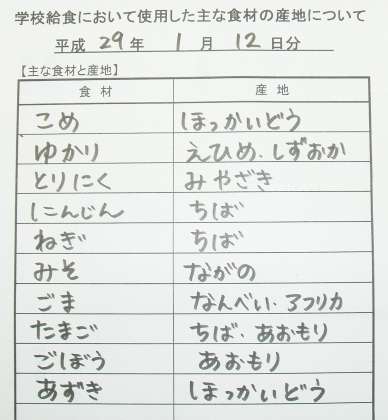 学校給食において使用した主な食材の産地について
平成 29 年 1 月 12 日分
【主な食材と産地】
食材 産地
こめ ほっかいどう
ゆかり えひめ、しずおか
とりにく みやざき
にんじん ちば
ねぎ ちば
みそ ながの
ごま なんべい・アフリカ
たまご ちば、あおもり
ごぼう あおもり
あずき ほっかいどう